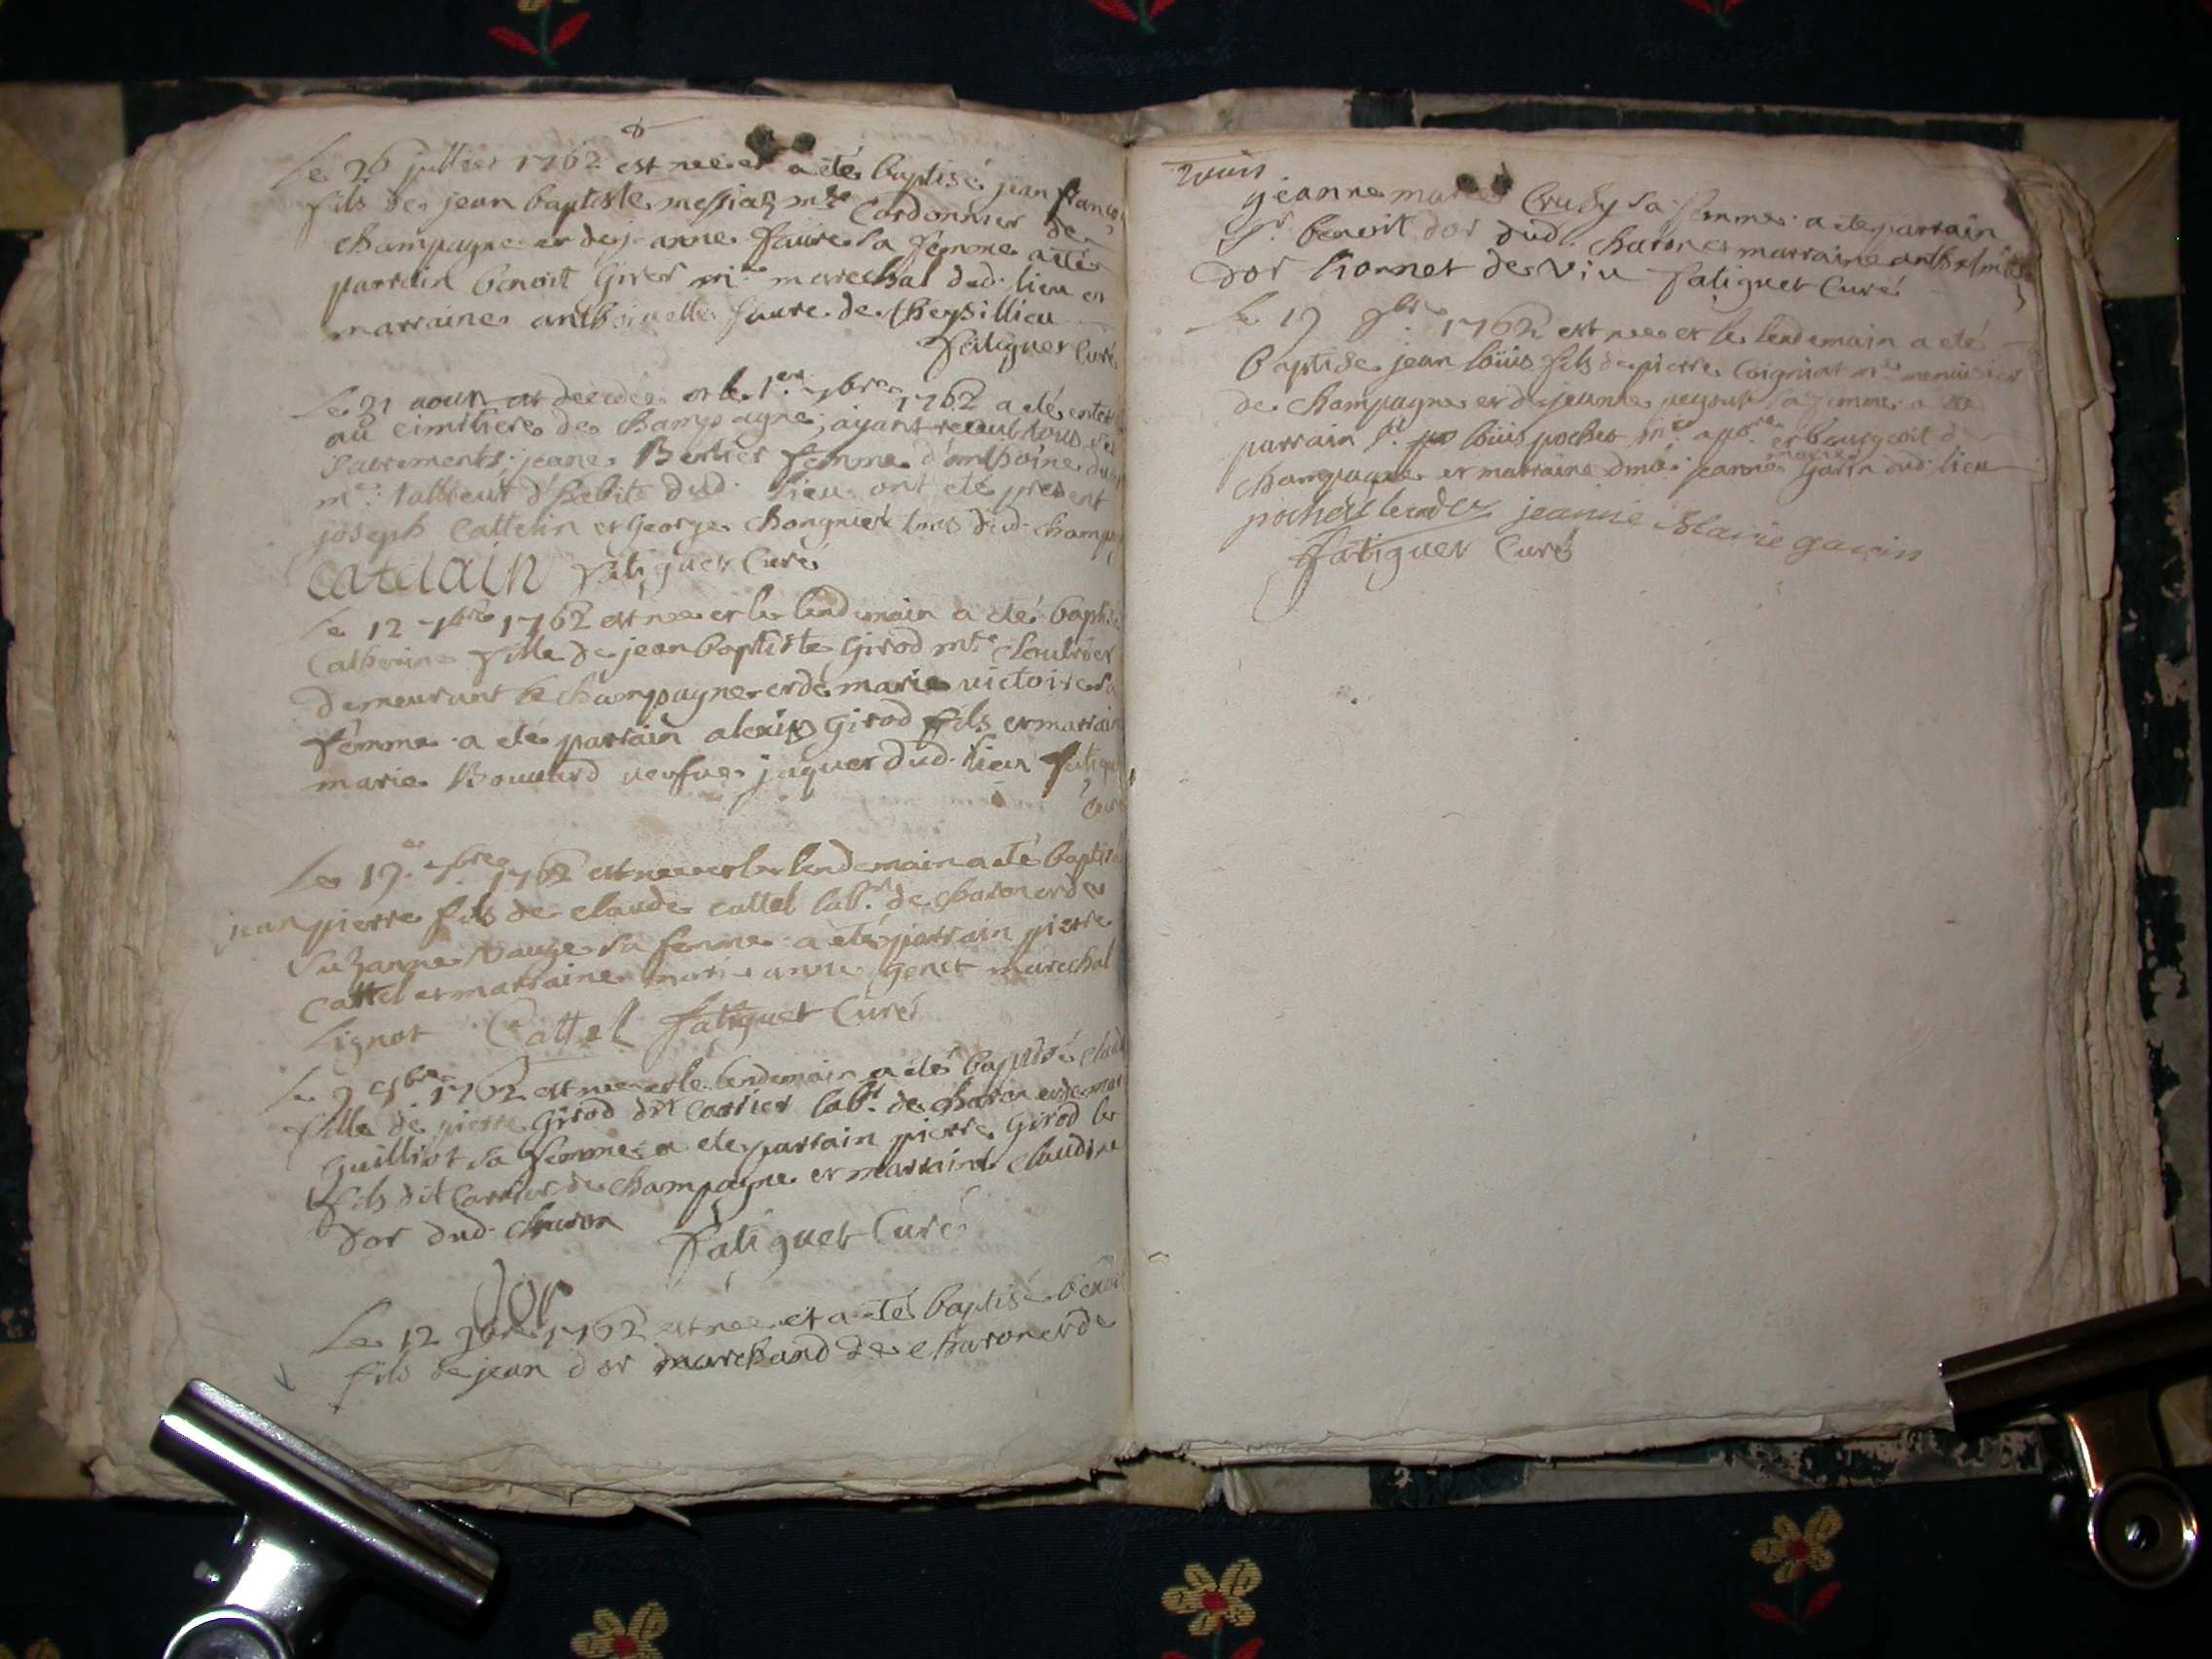 Le 26 jullier 1762 est nee et a eté baptisé jean francoi
fils de jean baptiste messiaz mtre Cordonnier de
champagne et de jeanne faure sa femme a eté
parrain benoit Girod mtre marechal dud. lieu et
marraine anthoinette faure de theysillieu
fatiguet Curé
Le 31 aout est decedée et le 1er 7bre 1762 a eté enter
au cimitiere de champagne, ayant receu tous ses
Sacrements, jeane Berlier femme d'anthoine
mtre tallieur d'habits dud. lieu ont eté present
joseph Cattelin et George Chongniet tous dud. champ
Catelain fatiguet Curé
Le 12 7bre 1762 est nee et le lendemain a eté baptis
Catherine fille de jean baptiste Girod mtre cloutrier
demeurant a champagne et de marie victoire sa
femme a eté parrain alexis girod fils et marrain
marie Bouvard veufve jaquet dud. lieu fatigu
Curé
Le 19e 7bre 1762 est nee et le lendemain a eté baptisé
jean pierre fils de claude cattel labr. de charon et de
Suzanne sa femme a eté parrain pierre
Cattel et marraine marie anne genet marechal
Lignot Cattel fatiguet Curé
Le 9 1762 est nee et le lendemain a eté baptisé claud
fille de pierre Girod dit Carrier labr. de charon et de mar
Guilliot sa femme a eté parrain pierre Girod le
fils dit Carrier de champagne et marraine claudine
dor dud. charon fatiguet Curé
Dor
Le 12 1762 est nee et a eté baptisé benoi
fils de jean dor marchand de charon et de
jeanne marie Cruzy sa femme a eté parrain
Sr. benoit dor dud. charon et marraine anthelmet
dor Lionnet de viu fatiguet Curé
Le 19 1762 est nee et le lendemain a eté
baptisé jean loüis fils de pierre Coignint mtre menuisier
de champagne et de jeanne sa femme a eté
parrain Sr. loüis pochet mtre et bourgeoit d
champagne et marraine dmlle jeanne marie Garin dud. lieu
pochet jeanne Marie garin
fatiguet Curé